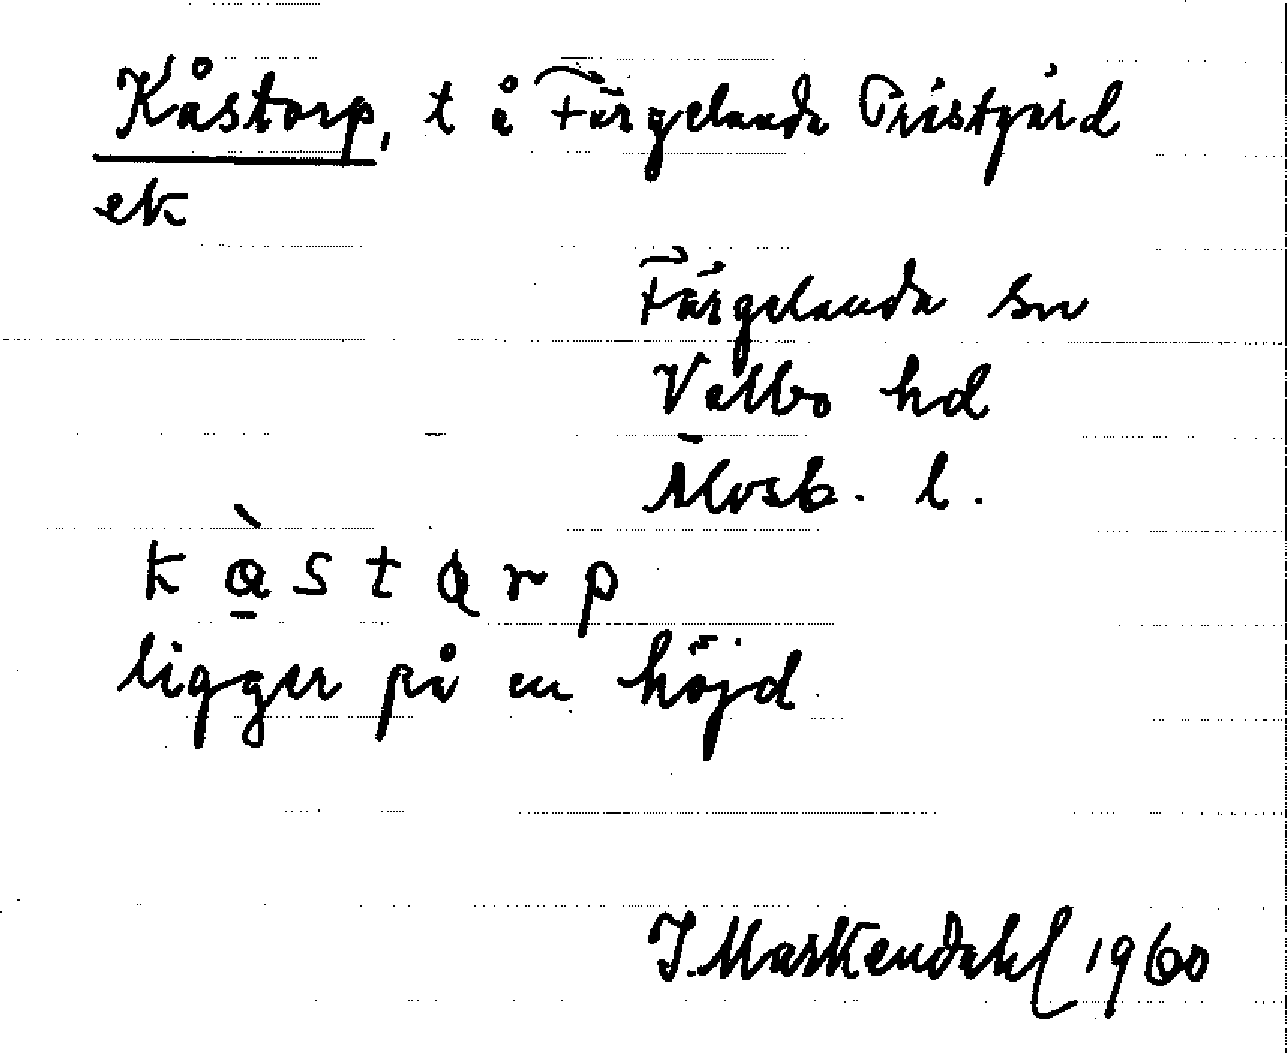 Kåstorp, t å Färgelanda Prästgård
ek
Färgelanda sn
Valbo hd
Älvsb. l.
kàstarp
ligger på en höjd
J. Markendahl 1960